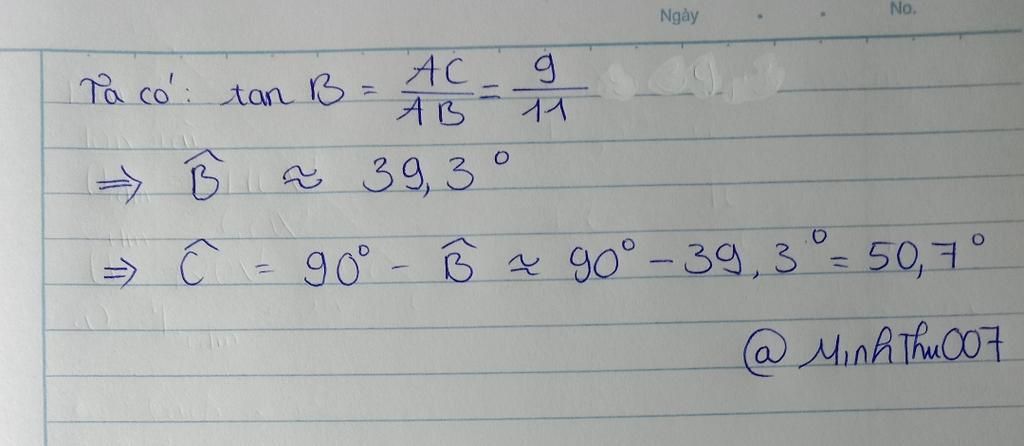 Ngày . . No.
Ta có: tan B = AC/AB = 9/11
⇒ B̂ ≈ 39,3°
⇒ Ĉ = 90° - B̂ ≈ 90° - 39,3° = 50,7°
@MinhThu007